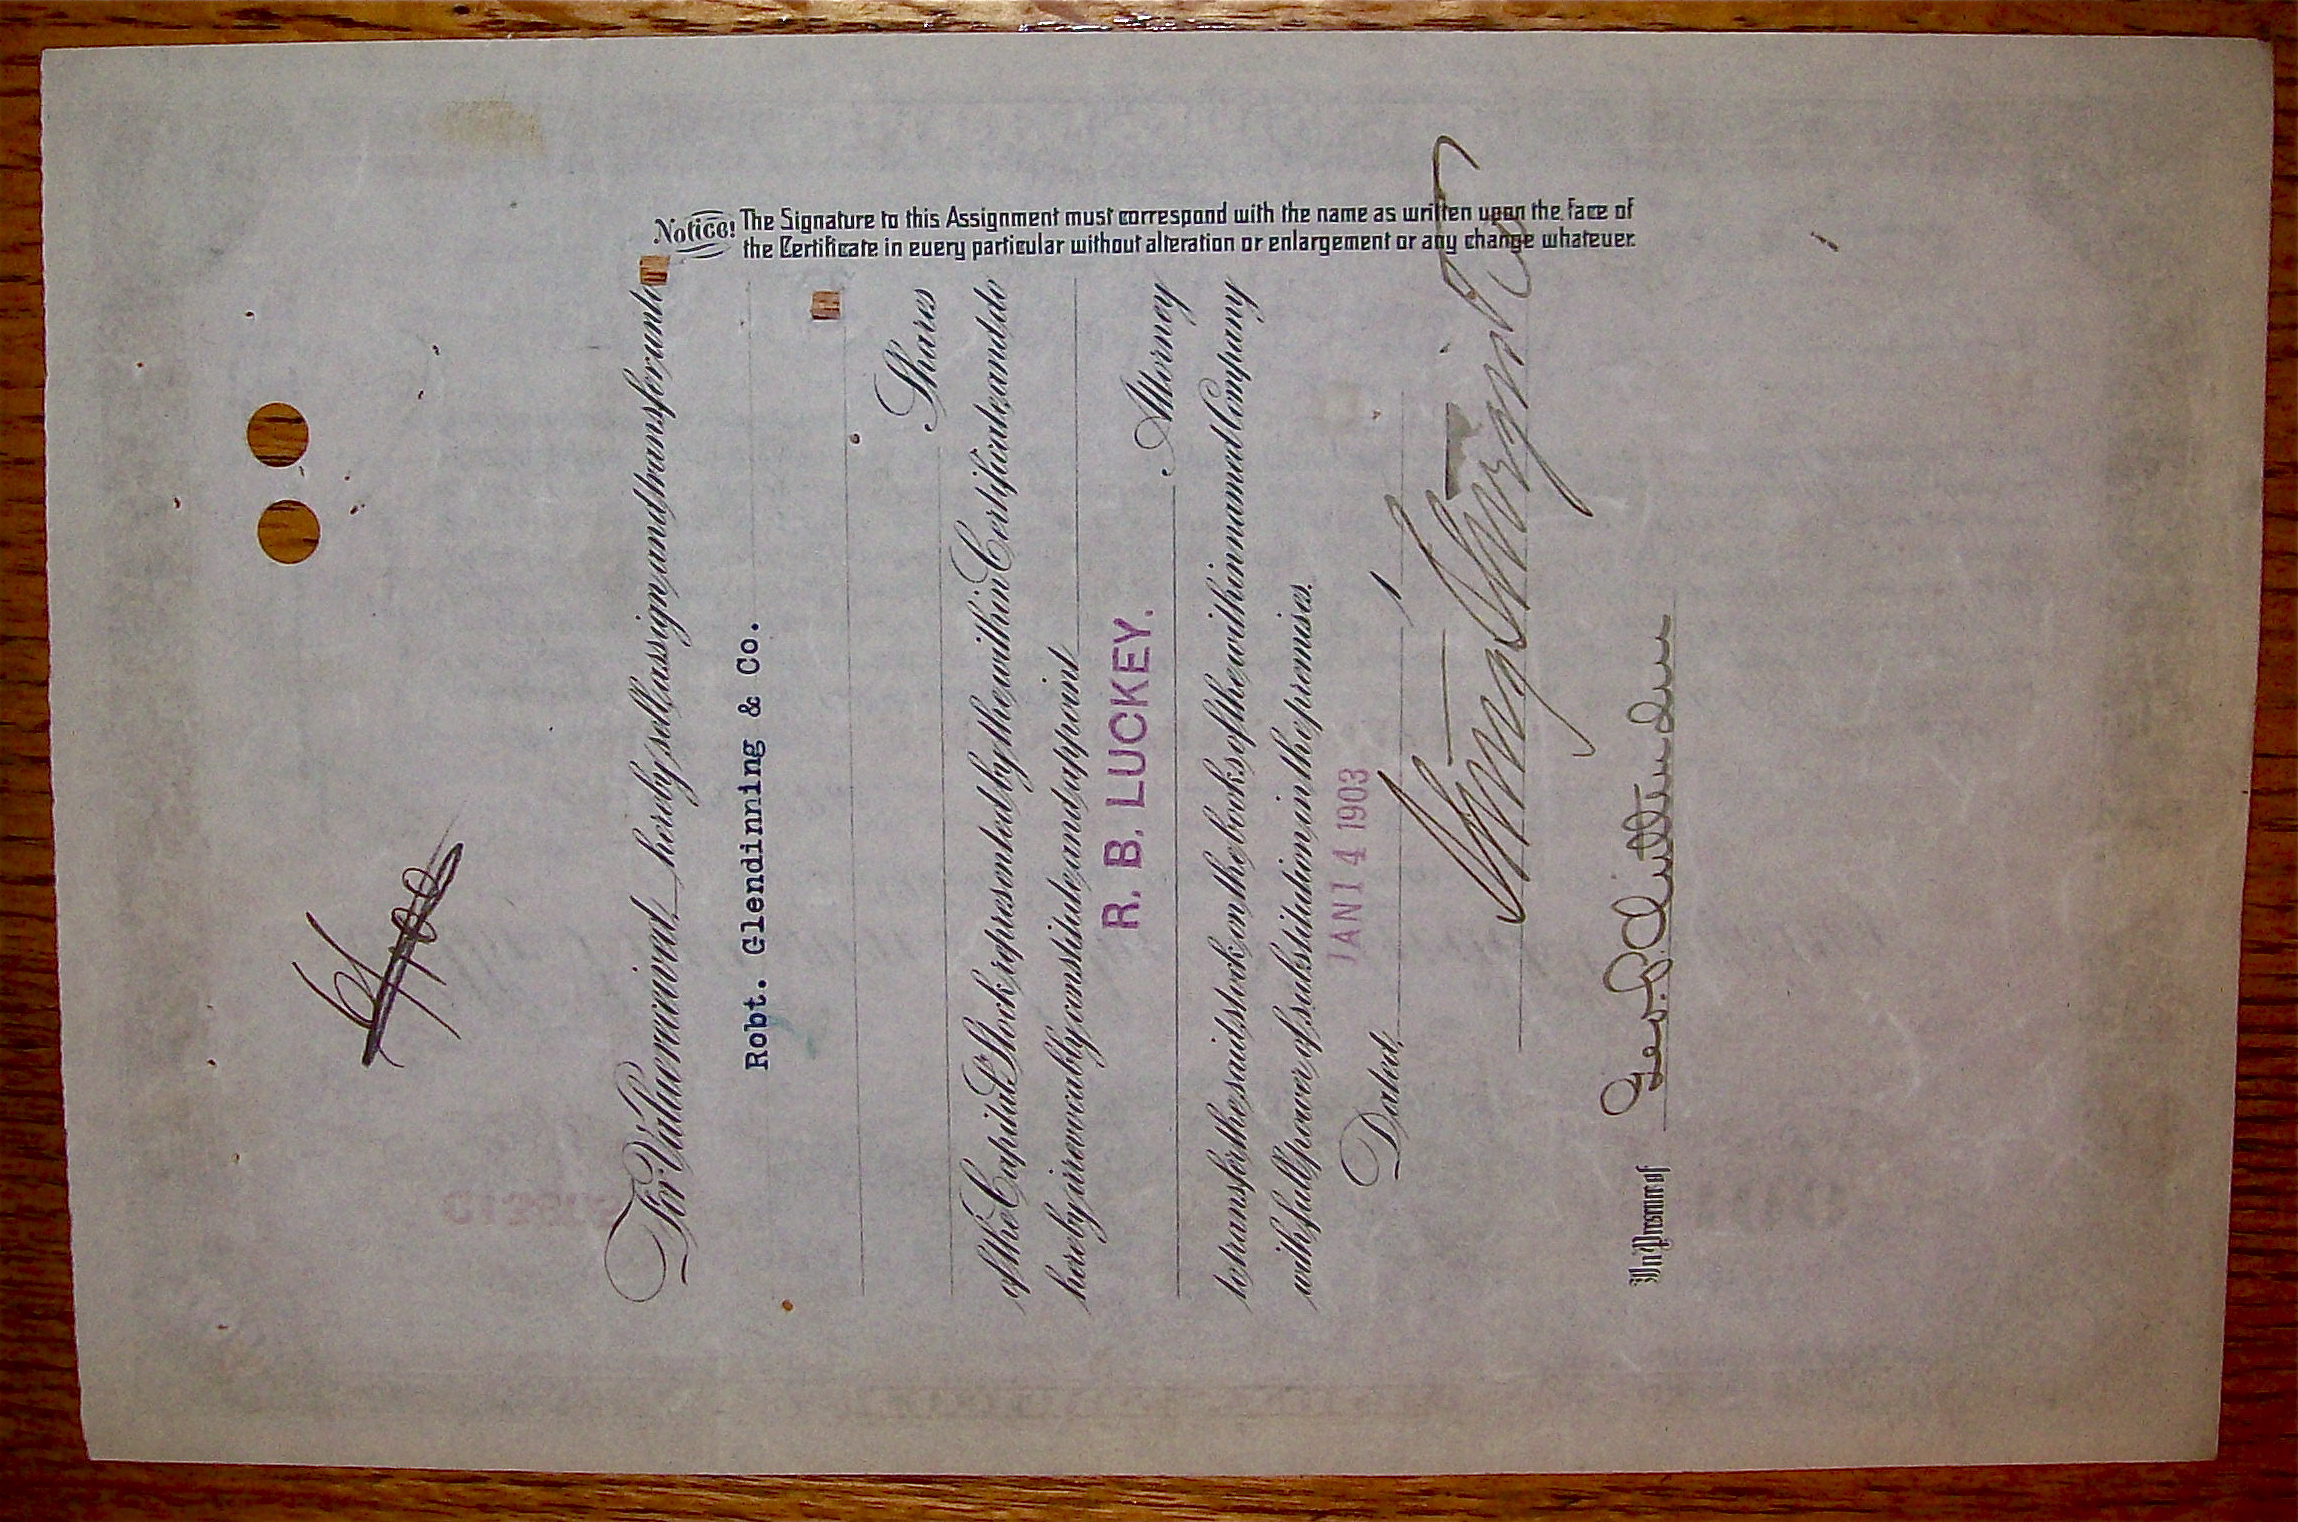 Notice! The Signature to this Assignment must correspond with the name as written upon the face of
the Certificate in every particular without alteration or enlargement or any change whatever.
For Value received, hereby sell, assign, and transfer unto
Robt. Glendinning & Co.
Shares
of the Capital Stock represented by the within Certificate, and do
hereby irrevocably constitute and appoint
R. B. LUCKEY.
Attorney
to transfer the said stock on the books of the within named Company
with full power of substitution in the premises.
JAN 14 1903
Dated, 1
In Presence of
Geo. P. Chittenden